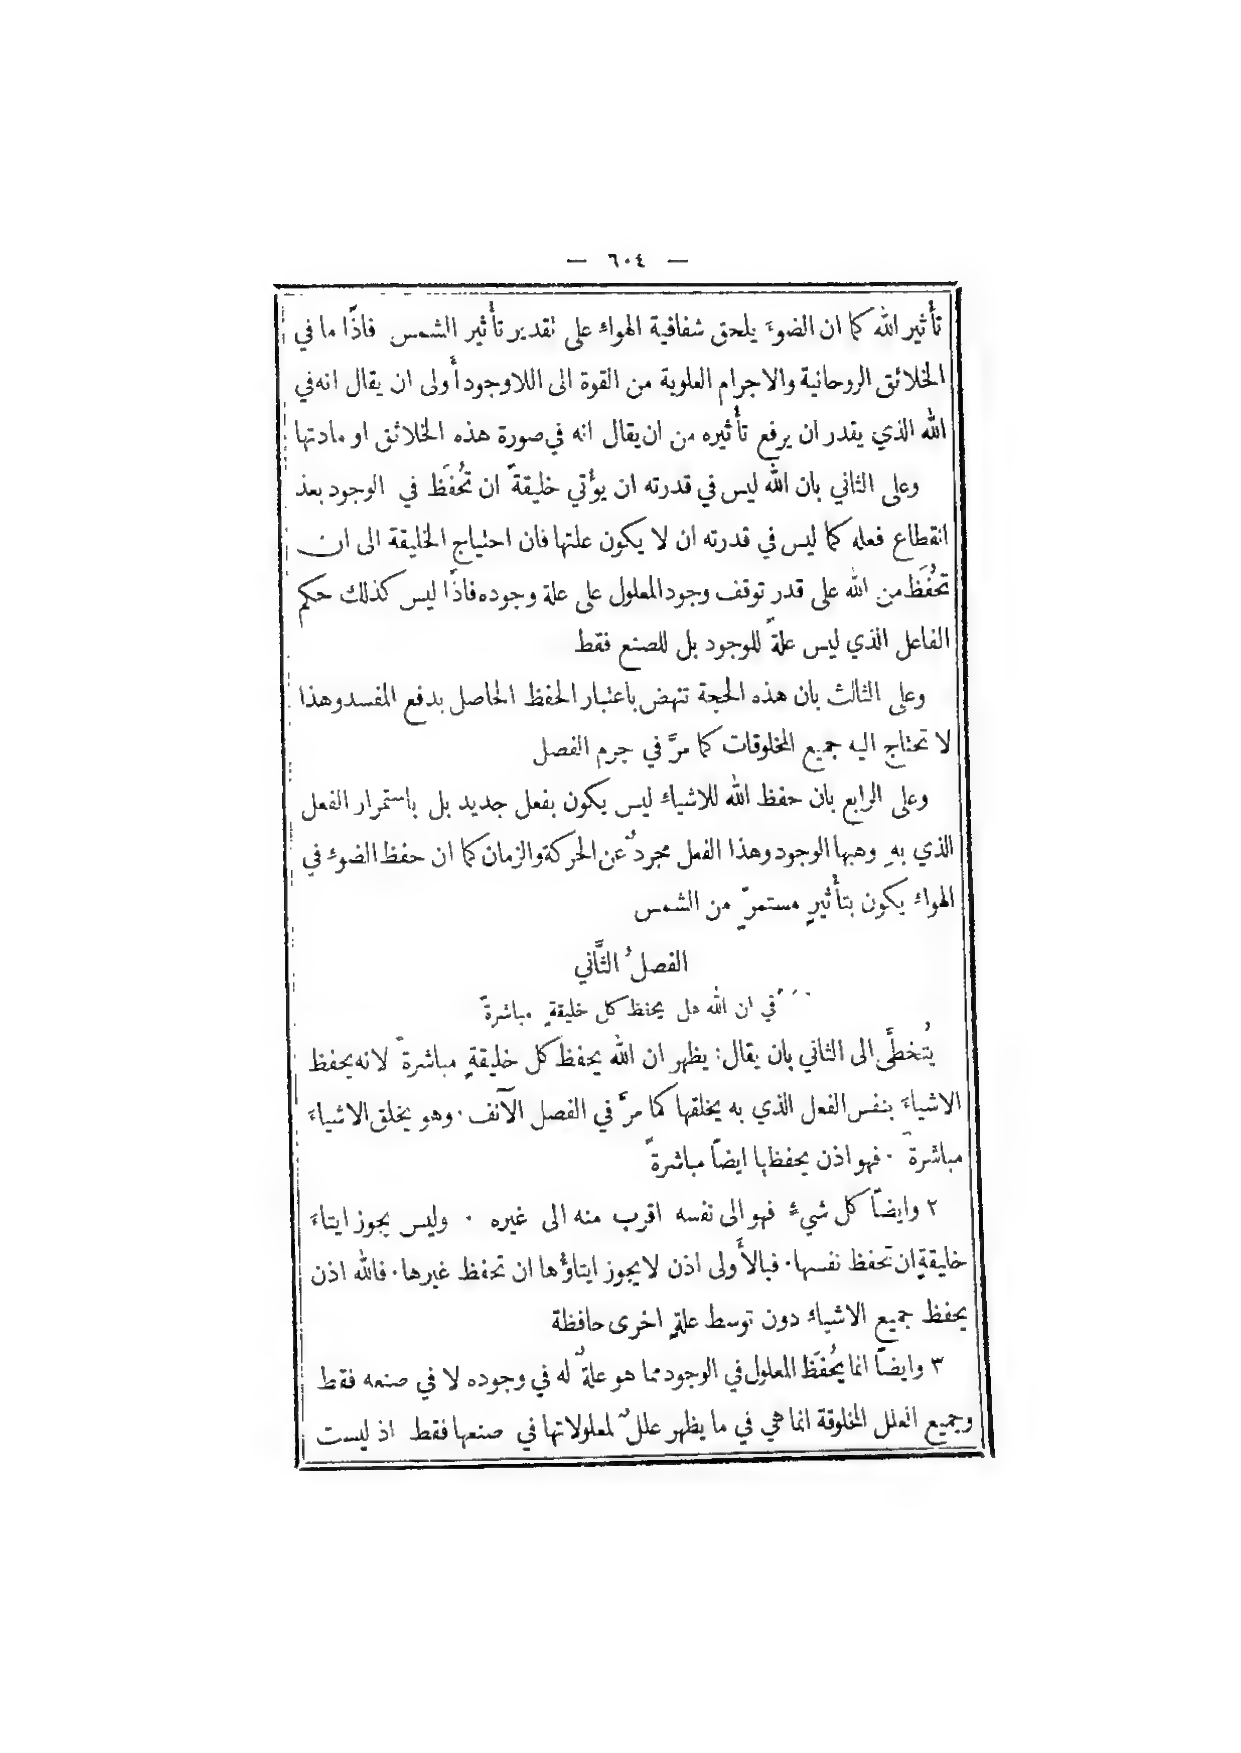 — ٦٠٤ —
تأثير الله كما ان الضوءَ يلحق شفافية الهواء على تقدير تأثير الشمس فاذًا ما في
الخلائق الروحانية والاجرام العلوية من القوة الى اللاوجود أولى ان يقال انه في
الله الذي يقدر ان يرفع تأثيره من ان يقال انه في صورة هذه الخلائق او مادتها
وعلى الثاني بان الله ليس في قدرته ان يؤتي خليقةً ان تُحفَظ في الوجود بعد
انقطاع فعله كما ليس في قدرته ان لا يكون علتها فان احتياج الخليقة الى ان
تُحفَظ من الله على قدر توقف وجود المعلول على علة وجوده فاذًا ليس كذلك حكم
الفاعل الذي ليس علةً للوجود بل للصنع فقط
وعلى الثالث بان هذه الحجة تنهض باعتبار الحفظ الحاصل بدفع المفسد وهذا
لا تحتاج اليه جميع المخلوقات كما مرَّ في جرم الفصل
وعلى الرابع بان حفظ الله للاشياء ليس يكون بفعل جديد بل باستمرار الفعل
الذي بهِ وهبها الوجود وهذا الفعل مجردٌ عن الحركة والزمان كما ان حفظ الضوء في
الهواء يكون بتأثيرٍ مستمرٍّ من الشمس
الفصلُ الثَّاني
في ان الله هل يحفظ كل خليقةٍ مباشرةً
يُتخطَّى الى الثاني بان يقال: يظهر ان الله يحفظ كل خليقةٍ مباشرةً لانه يحفظ
الاشياءَ بنفس الفعل الذي به يخلقها كما مرَّ في الفصل الآنف ٠ وهو يخلق الاشياءَ
مباشرةً ٠ فهو اذن يحفظها ايضًا مباشرةً
٢ وايضًا كل شيءٍ فهو الى نفسه اقرب منه الى غيره ٠ وليس يجوز ايتاءَ
خليقةٍ ان تحفظ نفسها ٠ فبالأَولى اذن لا يجوز ايتاؤُها ان تحفظ غيرها ٠ فالله اذن
يحفظ جميع الاشياء دون توسط علةٍ اخرى حافظة
٣ وايضًا انما يُحفَظ المعلول في الوجود مما هو علةٌ له في وجوده لا في صنعه فقط
وجميع العلل المخلوقة انما هي في ما يظهر عللٌ لمعلولاتها في صنعها فقط اذ ليست